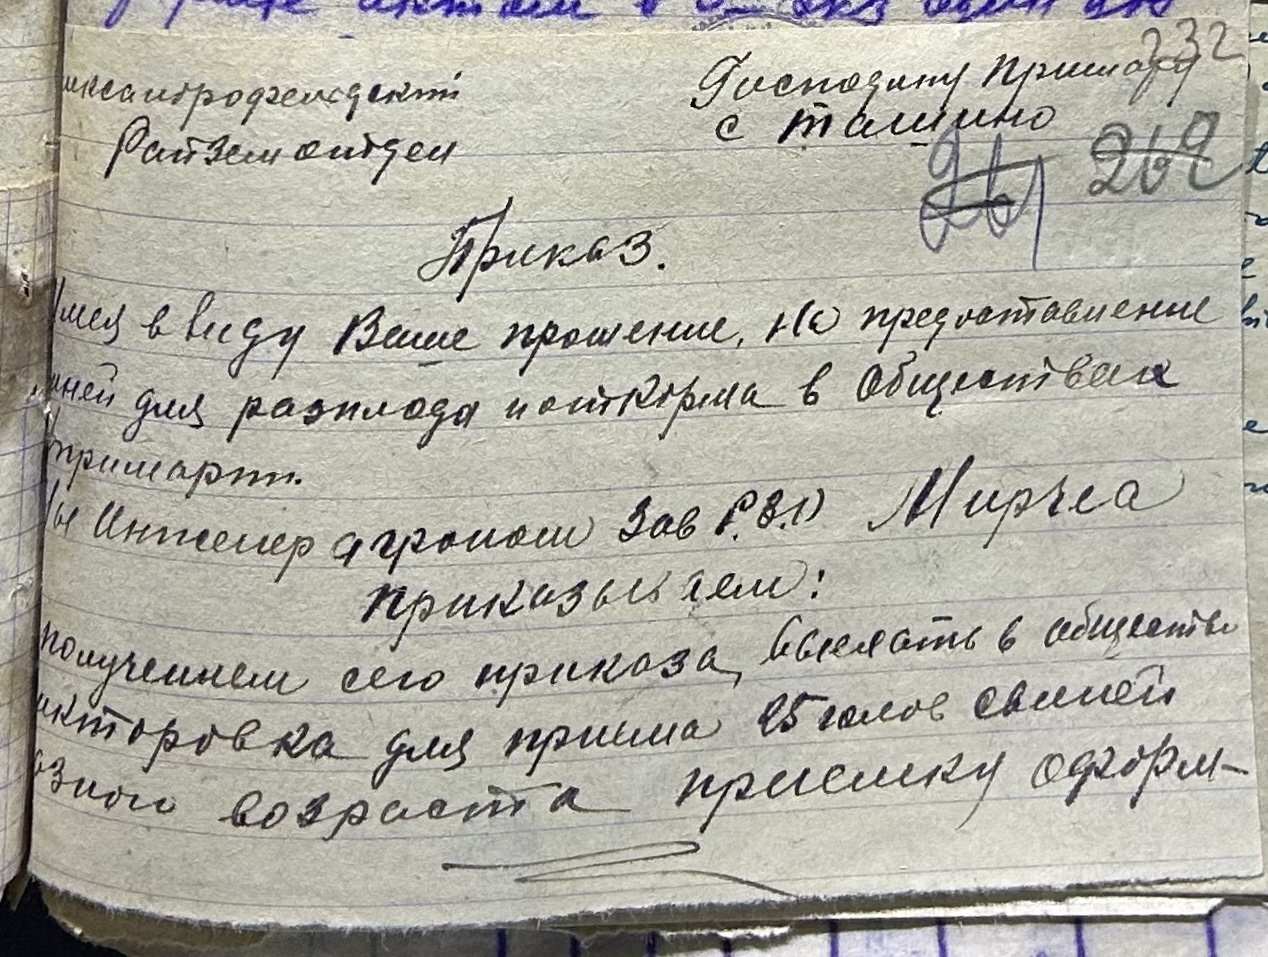 ксандрофельдский
Райземотдел
Господину Примару
с Ташино
232
269
Приказ.
Имея в виду Ваше прошение, на предоставление
иней для разплода и откорма в обществах
примарии.
Мы Инженер агроном Зав Р.З.О Мирча
приказываем:
получением сего приказа, выехать в общество
икторовка для приема 25 голов свиней
азного возраста приемку оформ-